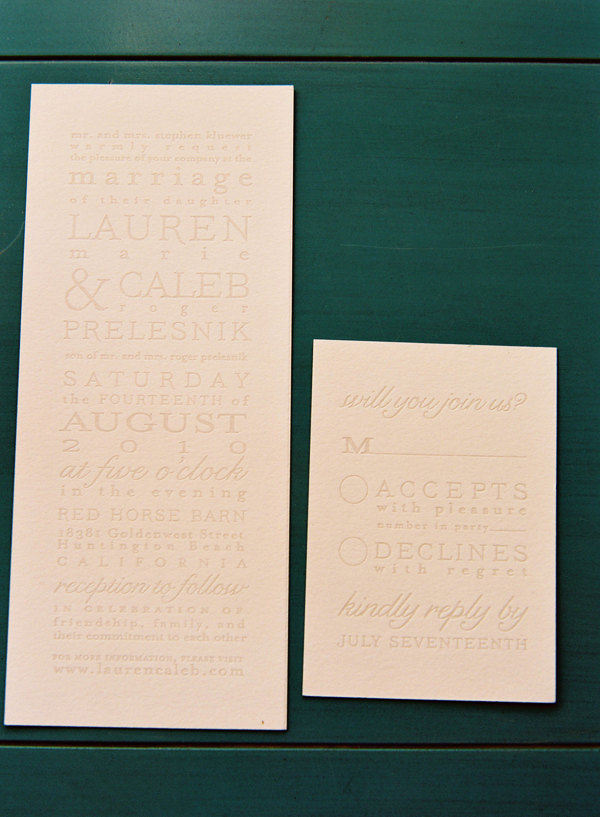 mr. and mrs. stephen kluewer
warmly request
the pleasure of your company at the
marriage
of their daughter
LAUREN
marie
& CALEB
roger
PRELESNIK
son of mr. and mrs. roger prelesnik
SATURDAY
the FOURTEENTH of
AUGUST
2010
at five o'clock
in the evening
RED HORSE BARN
18381 Goldenwest Street
Huntington Beach
CALIFORNIA
reception to follow
IN CELEBRATION OF
friendship, family, and
their commitment to each other
FOR MORE INFORMATION, PLEASE VISIT
www.laurencaleb.com
will you join us?
M
ACCEPTS
with pleasure
number in party
DECLINES
with regret
kindly reply by
JULY SEVENTEENTH